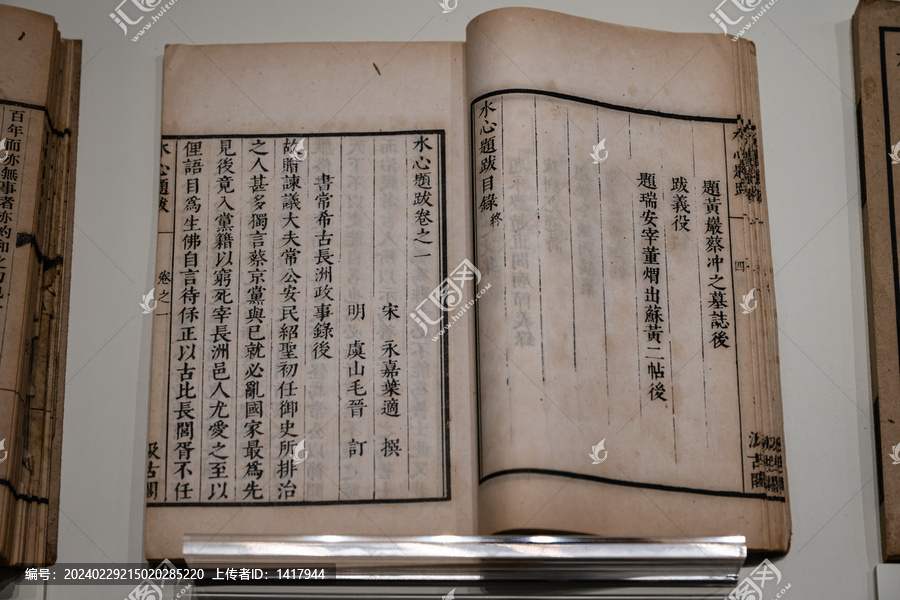 題黃巖蔡冲之墓誌後
跋義役
題瑞安宰董熠出蘇黃二帖後
水心題跋目錄終
四
汲古閣
水心題跋卷之一
宋 永嘉葉適 撰
明 虞山毛晉 訂
書常希古長洲政事錄後
故贈諫議大夫常公安民紹聖初任御史所排治
之人甚多獨言蔡京黨與已就必亂國家最爲先
見後竟入黨籍以窮死宰長洲邑人尤愛之至以
俚語目爲生佛自言待係正以古比長閭胥不任
水心題跋
卷之一
汲古閣
百年而亦無事者亦
編号:20240229215020285220 上传者ID:1417944
摄图网